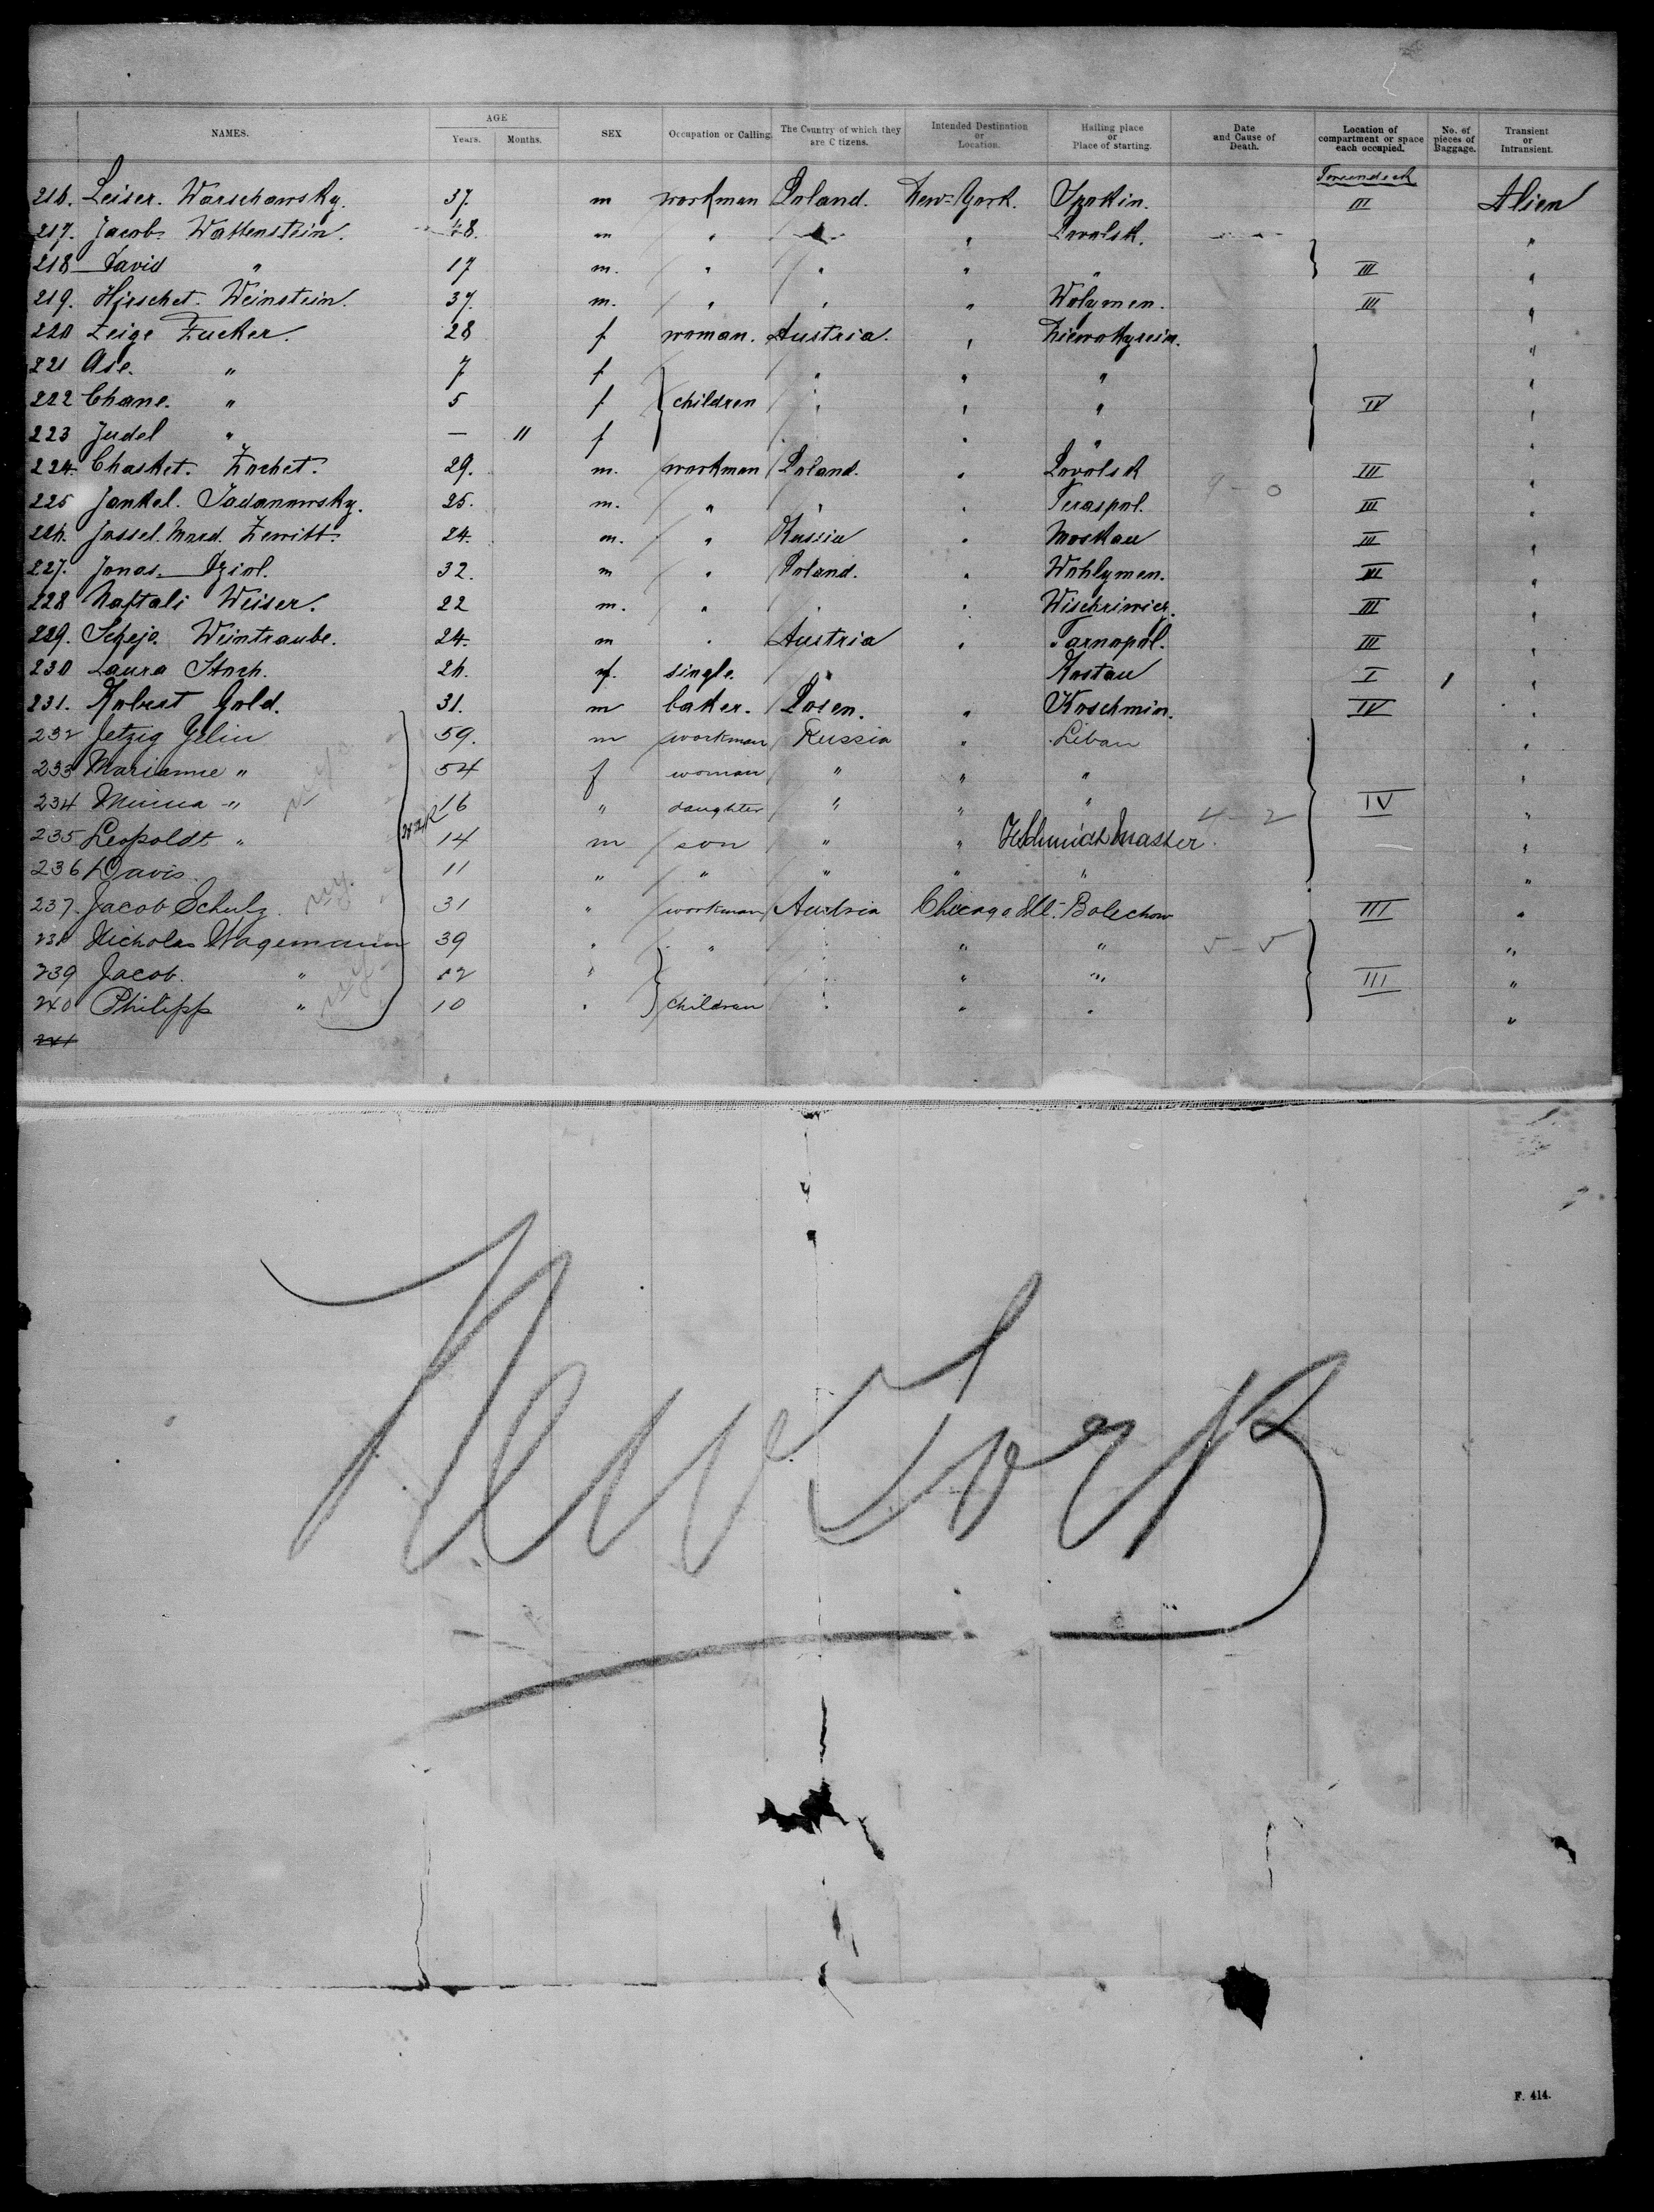 NAMES. AGE Years. Months. SEX Occupation or Calling. The Country of which they are Citizens. Intended Destination or Location. Hailing place or Place of starting. Date and Cause of Death. Location of compartment or space each occupied. No. of pieces of Baggage. Transient or Intransient.
216. Leiser. Warschawsky. 37. m workman Poland. New-York. III Alien
217. Jacob. Wattenstein. 48. m " " " "
218 David " 17 m. " " " " III "
219. Hirschet. Weinstein. 37. m. " " " Wolymen. III "
220 Feige Zucker. 28 f woman. Austria. " "
221 " 7 f " " " "
222 Chane. " 5 f children " " " IV "
223 Judel " — 11 f " " " "
224. Chasket. 29. m. workman Poland. " III "
225 Jankel. Sadanowsky. 25. m. " " " Teraspol. III "
226. Jossel. Mord. Lewitt. 24. m. " Russia " Moskau III "
227. Jonas. 32. m " Poland. " Wohlymen. III "
228 Naftali Weiser. 22 m. " " " III "
229. Schejo. Weintraube. 24. m " Austria " Tarnopol. III "
230 Laura 26. f. single. " Rostau I 1 "
231. Robert Gold. 31. m baker. Posen. " Koschmin. IV "
232 Jetzig Gelin 59. m workman Russia " Libau "
233 Marianne " 54 f woman " " " "
234 Minna " 16 " daughter " " " IV 4-2 "
235 Leopoldt " 14 m son " " H Schmidt Master. "
236 Davis 11 " " " " " "
237. Jacob Schulz 31 " workman Austria Chicago Ill. Bolechow III "
238 Nicholas Wagemann 39 " " " " " 5-5 "
239 Jacob. " 12 " " " " III "
240 Philipp " 10 " children " " " "
241
New York
F. 414.